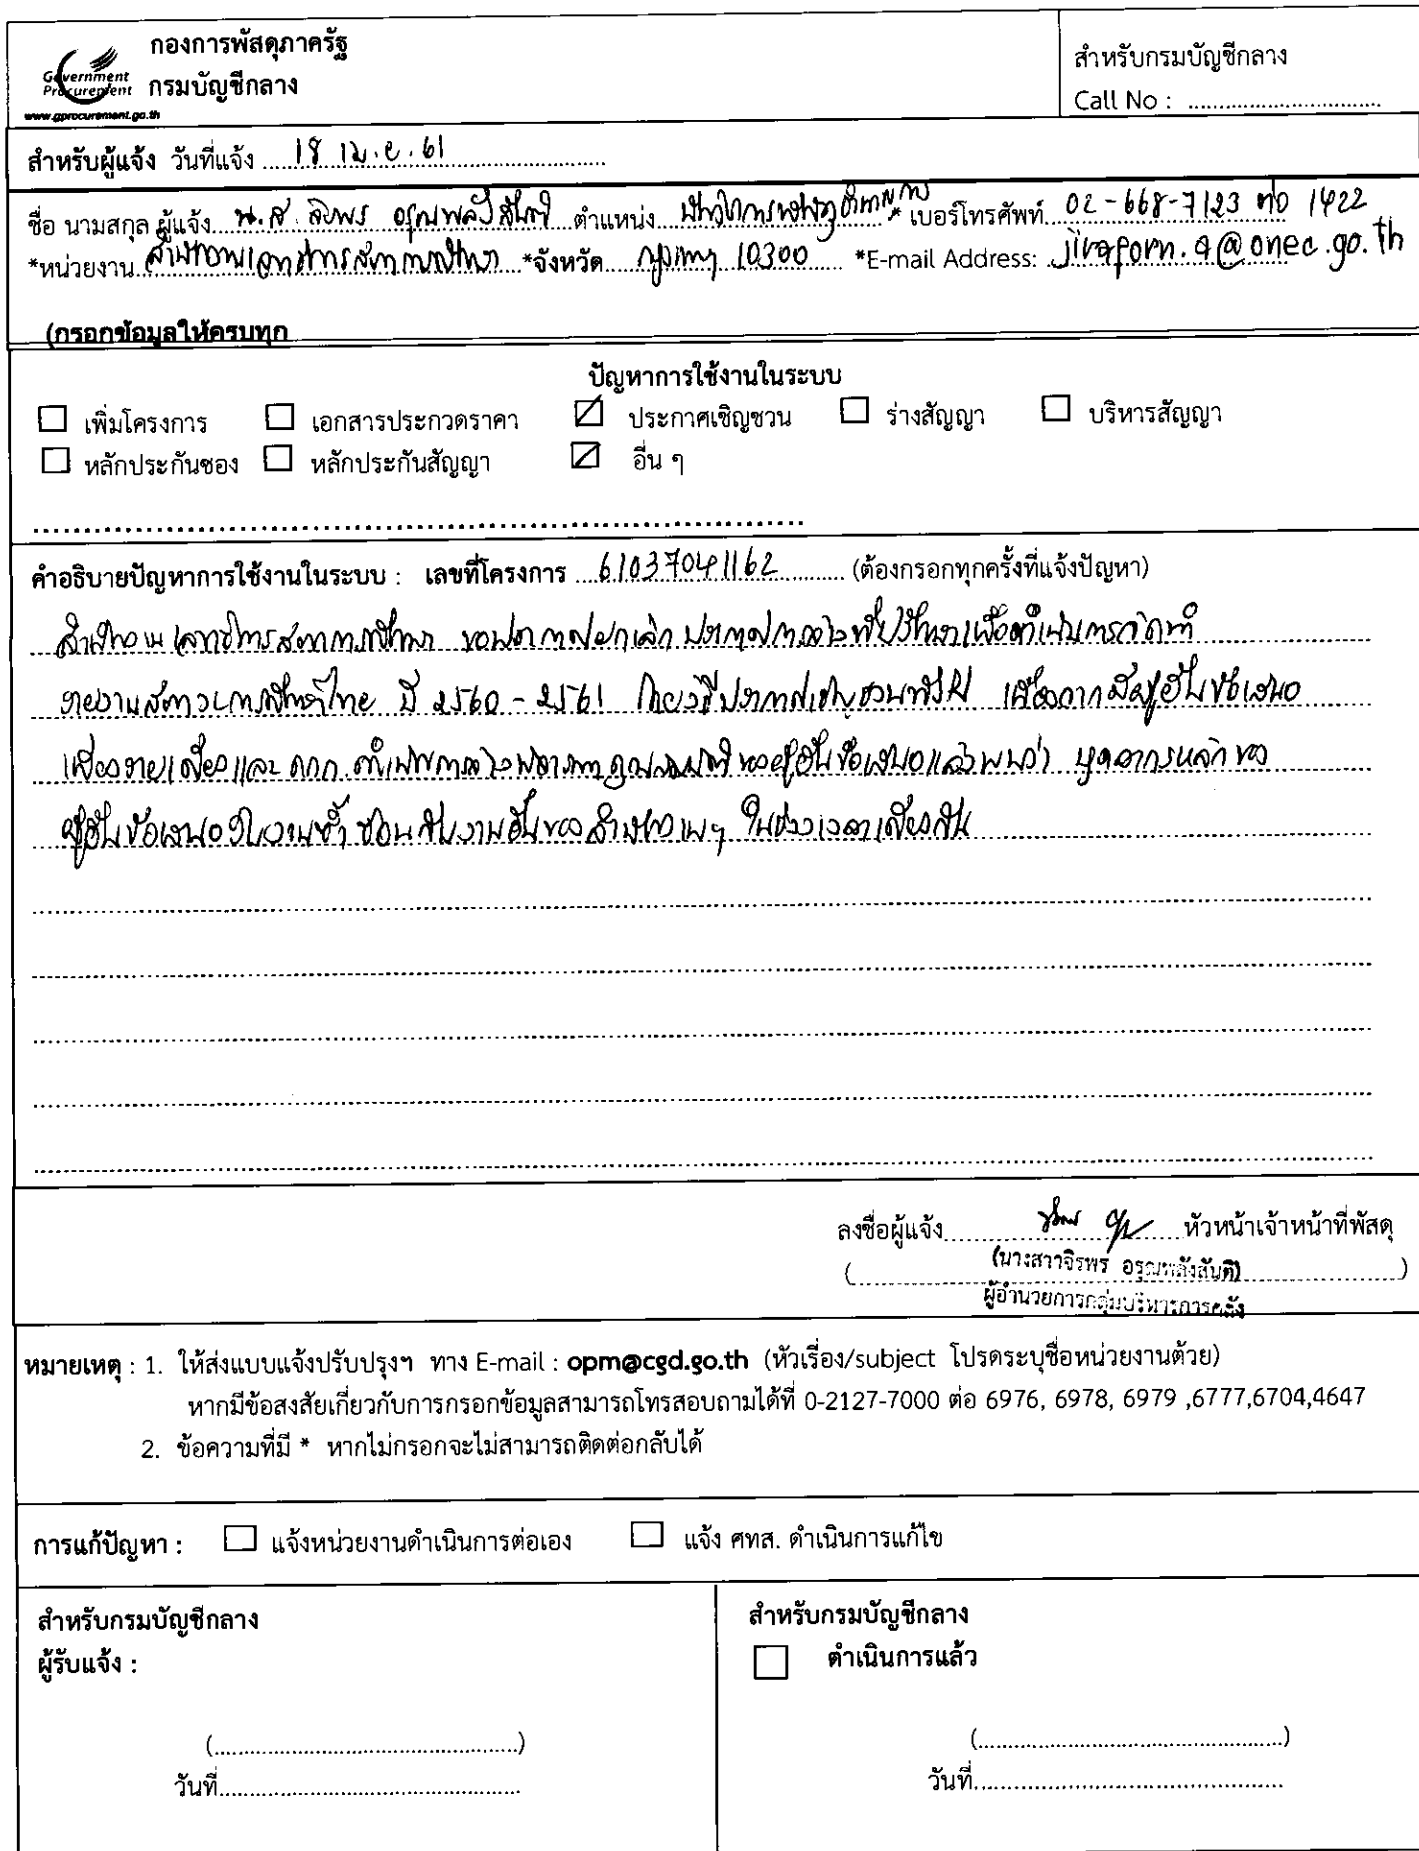 กองการพัสดุภาครัฐ
Government Procurement กรมบัญชีกลาง
www.gprocurement.go.th
สำหรับกรมบัญชีกลาง
Call No : ........................
สำหรับผู้แจ้ง วันที่แจ้ง 18 เม.ย. 61
ชื่อ นามสกุล ผู้แจ้ง น.ส. จิรพร อรุณพลังสันติ ตำแหน่ง นักวิชาการพัสดุชำนาญการ * เบอร์โทรศัพท์ 02-668-7123 ต่อ 1422
*หน่วยงาน สำนักงานเลขาธิการสภาการศึกษา *จังหวัด กรุงเทพฯ 10300 *E-mail Address: jiraporn.a@onec.go.th
(กรอกข้อมูลให้ครบทุก
ปัญหาการใช้งานในระบบ
เพิ่มโครงการ เอกสารประกวดราคา ประกาศเชิญชวน ร่างสัญญา บริหารสัญญา
หลักประกันซอง หลักประกันสัญญา อื่น ๆ
คำอธิบายปัญหาการใช้งานในระบบ : เลขที่โครงการ 61037041162 (ต้องกรอกทุกครั้งที่แจ้งปัญหา)
สำนักงานเลขาธิการสภาการศึกษา ขอประกาศยกเลิก ประกาศการจ้างที่ปรึกษาเพื่อดำเนินการจัดทำ
รายงานสภาวะการศึกษาไทย ปี 2560 - 2561 โดยวิธีประกาศเชิญชวนทั่วไป เนื่องจากมีผู้ยื่นข้อเสนอ
เพียงรายเดียวและ คกก. ดำเนินการจ้างพิจารณาคุณสมบัติของผู้ยื่นข้อเสนอแล้วพบว่า บุคลากรหลักของ
ผู้ยื่นข้อเสนอรับงานซ้ำซ้อนกับงานอื่นของสำนักงานฯ ในช่วงเวลาเดียวกัน
ลงชื่อผู้แจ้ง หัวหน้าเจ้าหน้าที่พัสดุ
(นางสาวจิรพร อรุณพลังสันติ)
ผู้อำนวยการกลุ่มบริหารการคลัง
หมายเหตุ : 1. ให้ส่งแบบแจ้งปรับปรุงฯ ทาง E-mail : opm@cgd.go.th (หัวเรื่อง/subject โปรดระบุชื่อหน่วยงานด้วย)
หากมีข้อสงสัยเกี่ยวกับการกรอกข้อมูลสามารถโทรสอบถามได้ที่ 0-2127-7000 ต่อ 6976, 6978, 6979 ,6777,6704,4647
2. ข้อความที่มี * หากไม่กรอกจะไม่สามารถติดต่อกลับได้
การแก้ปัญหา : แจ้งหน่วยงานดำเนินการต่อเอง แจ้ง ศทส. ดำเนินการแก้ไข
สำหรับกรมบัญชีกลาง
ผู้รับแจ้ง :
(........................)
วันที่........................
สำหรับกรมบัญชีกลาง
ดำเนินการแล้ว
(........................)
วันที่........................